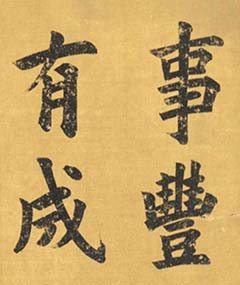 事豐
有成